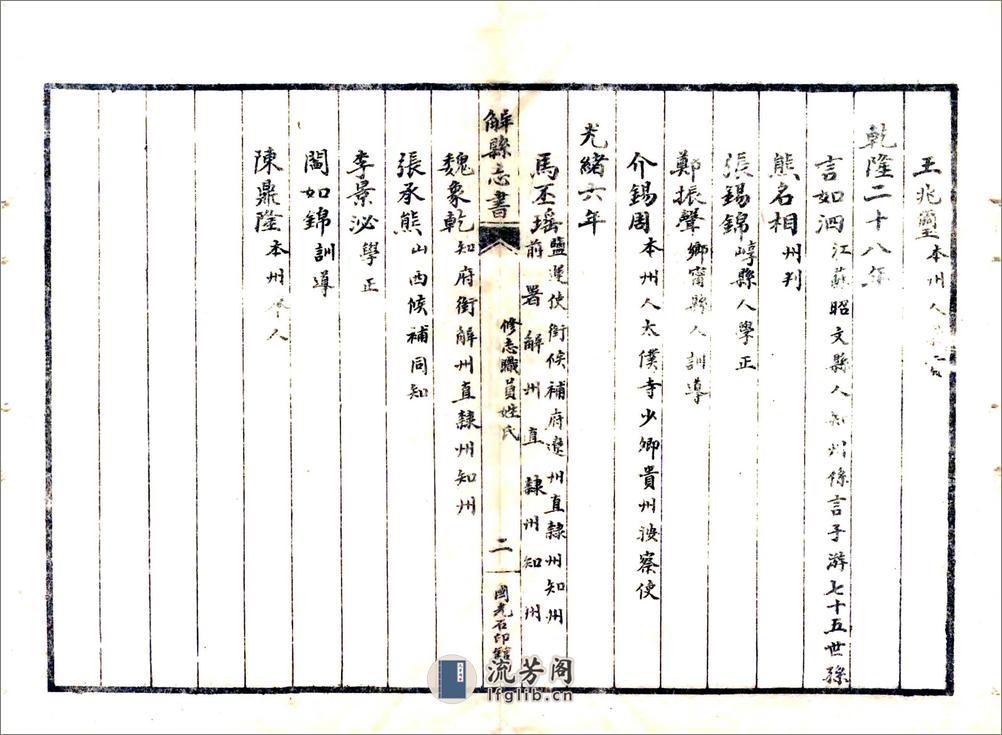 王兆璽本州人
乾隆二十八年
言如泗江蘇昭文縣人知州係言子游七十五世孫
熊名相州判
張錫錦崞縣人學正
鄭振聲鄉甯縣人訓導
介錫周本州人太僕寺少卿貴州按察使
光緒六年
馬丕瑤鹽運使銜候補府遼州直隸州知州
前署解州直隸州知州
解縣志書
修志職員姓氏
二
國光石印館
魏象乾知府銜解州直隸州知州
張承熊山西候補同知
李景泌學正
閻如錦訓導
陳鼎隆本州人
流芳阁
lfglib.cn